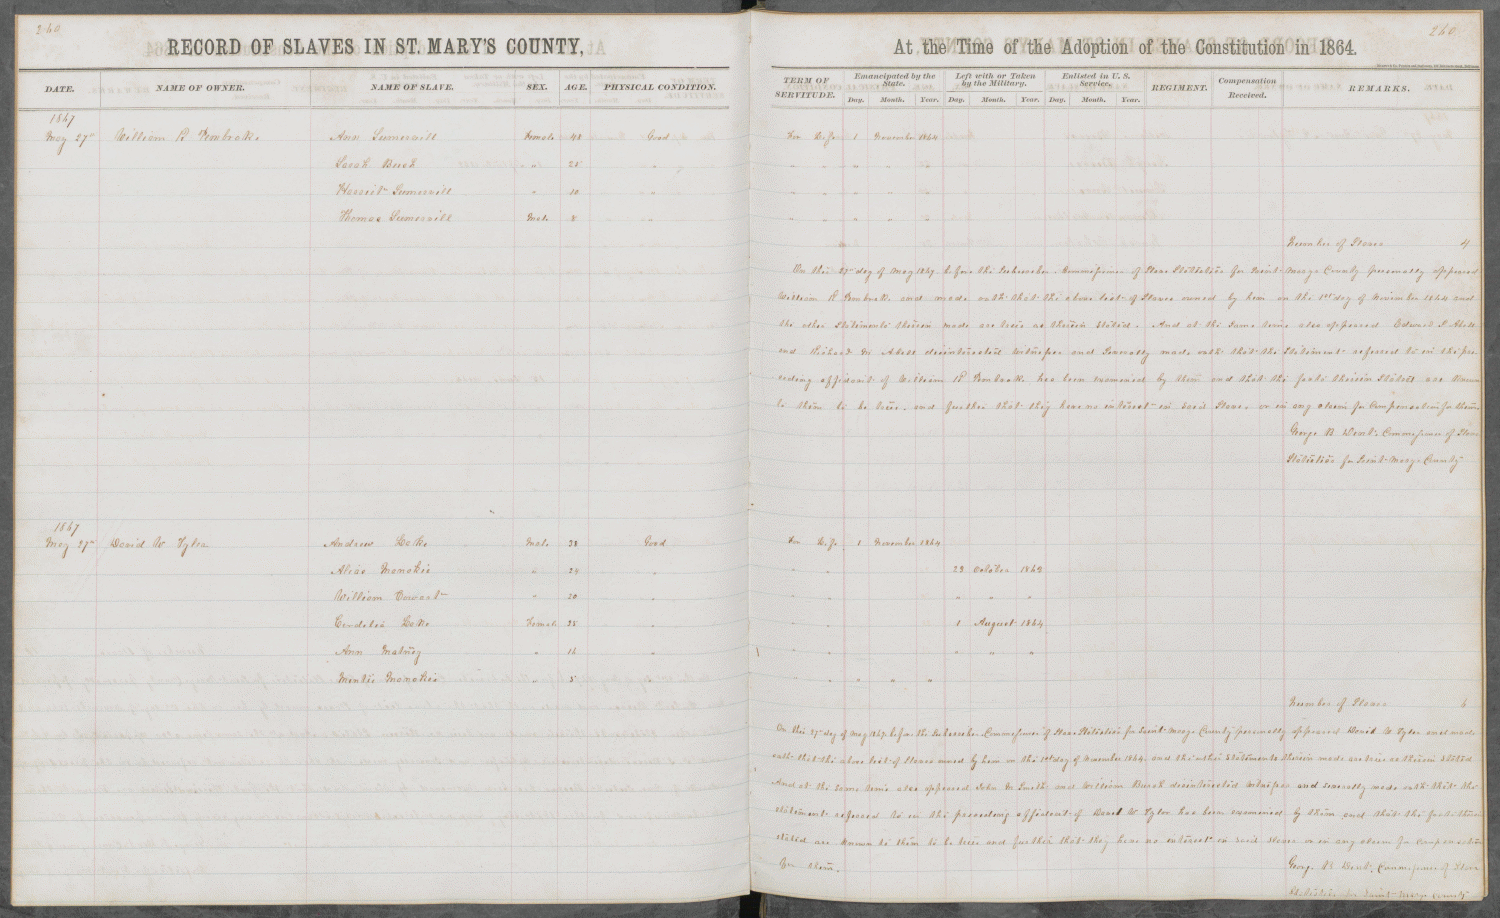 260
260
RECORD OF SLAVES IN ST. MARY'S COUNTY,
At the Time of the Adoption of the Constitution in 1864.
DATE. NAME OF OWNER. NAME OF SLAVE. SEX. AGE. PHYSICAL CONDITION.
TERM OF SERVITUDE. Emancipated by the State. Left with or Taken by the Military. Enlisted in U. S. Service. REGIMENT. Compensation Received. REMARKS.
Day. Month. Year. Day. Month. Year. Day. Month. Year.
1867
May 27" William R Pembroke Ann Sumervill Female 48 Good For Life 1 November 1864
Sarah " 25 " " " " " "
Harriet Sumervill " 10 " " " " " "
Thomas Sumervill Male 8 " " " " " "
Number of Slaves 4
On this 27" day of May 1867 before the Subscriber, Commissioner of Slave Statistics for Saint Marys County personally appeared
William R Pembroke and made oath that the above list of Slaves owned by him on the 1st day of November 1864 and
the other Statements therein made are true as therein stated. And at the same time also appeared Edward Abell
and Richard M Abell disinterested witnesses and Severally made oath that the Statement referred to in the pre-
ceding affidavit of William R Pembroke has been examined by them and that the facts therein Stated are Known
to them to be true. and further that they have no interest in said Slaves or in any claim for Compensation for them.
George B. Dent. Commissioner of Slave
Statistics for Saint Marys County
1867
May 27" David W Tyler Andrew Male 38 Good For Life 1 November 1864
Alias " 24 " " " 29 October 1863
William " 20 " " " " " "
Female 35 " " " 1 August 1864
Ann " 16 " " " " " "
" 5 " " " " " "
Number of Slaves 6
On this 27" day of May 1867 before the Subscriber, Commissioner of Slave Statistics for Saint Marys County personally appeared David W Tyler and made
oath that the above list of Slaves owned by him on the 1st day of November 1864. and the other Statements therein made are true as therein stated
And at the Same time also appeared John M Smith and William Burch disinterested witnesses and severally made oath that the
statement referred to in the preceeding affidavit of David W Tyler has been examined by them and that the facts therein
stated are Known to them to be true and further that they have no interest in said slaves or in any claim for Compensation
for them.
George B Dent. Commissioner of Slave
Statistics for Saint Marys County